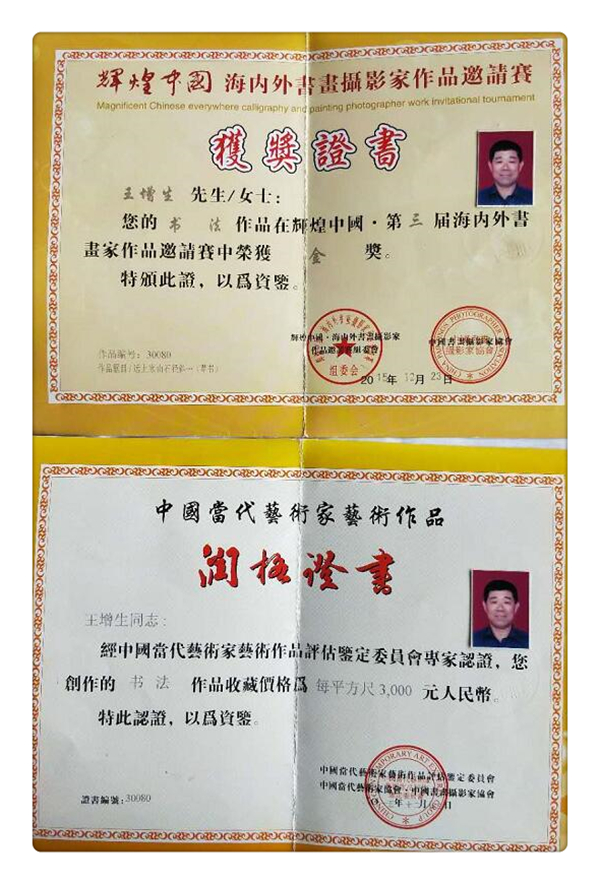 輝煌中國 海内外書畫攝影家作品邀請賽
Magnificent Chinese everywhere calligraphy and painting photographer work invitational tournament
獲獎證書
王增生 先生/女士：
您的 书法 作品在輝煌中國·第 三 届海内外書
畫家作品邀請賽中榮獲 金 獎。
特頒此證，以爲資鑒。
輝煌中國·海内外書畫攝影家
作品邀請賽組委會
中國書畫攝影家協會
組委会
攝影家協會
作品編号：30080
2015年12月23日
中國當代藝術家藝術作品
润格證書
王增生同志：
經中國當代藝術家藝術作品評估鑒定委員會專家認證，您
創作的 书法 作品收藏價格爲 每平方尺3,000 元人民幣。
特此認證，以爲資鑒。
中國當代藝術家藝術作品評估鑒定委員會
中國當代藝術家協會·中國書畫攝影家協會
證書編號：30080